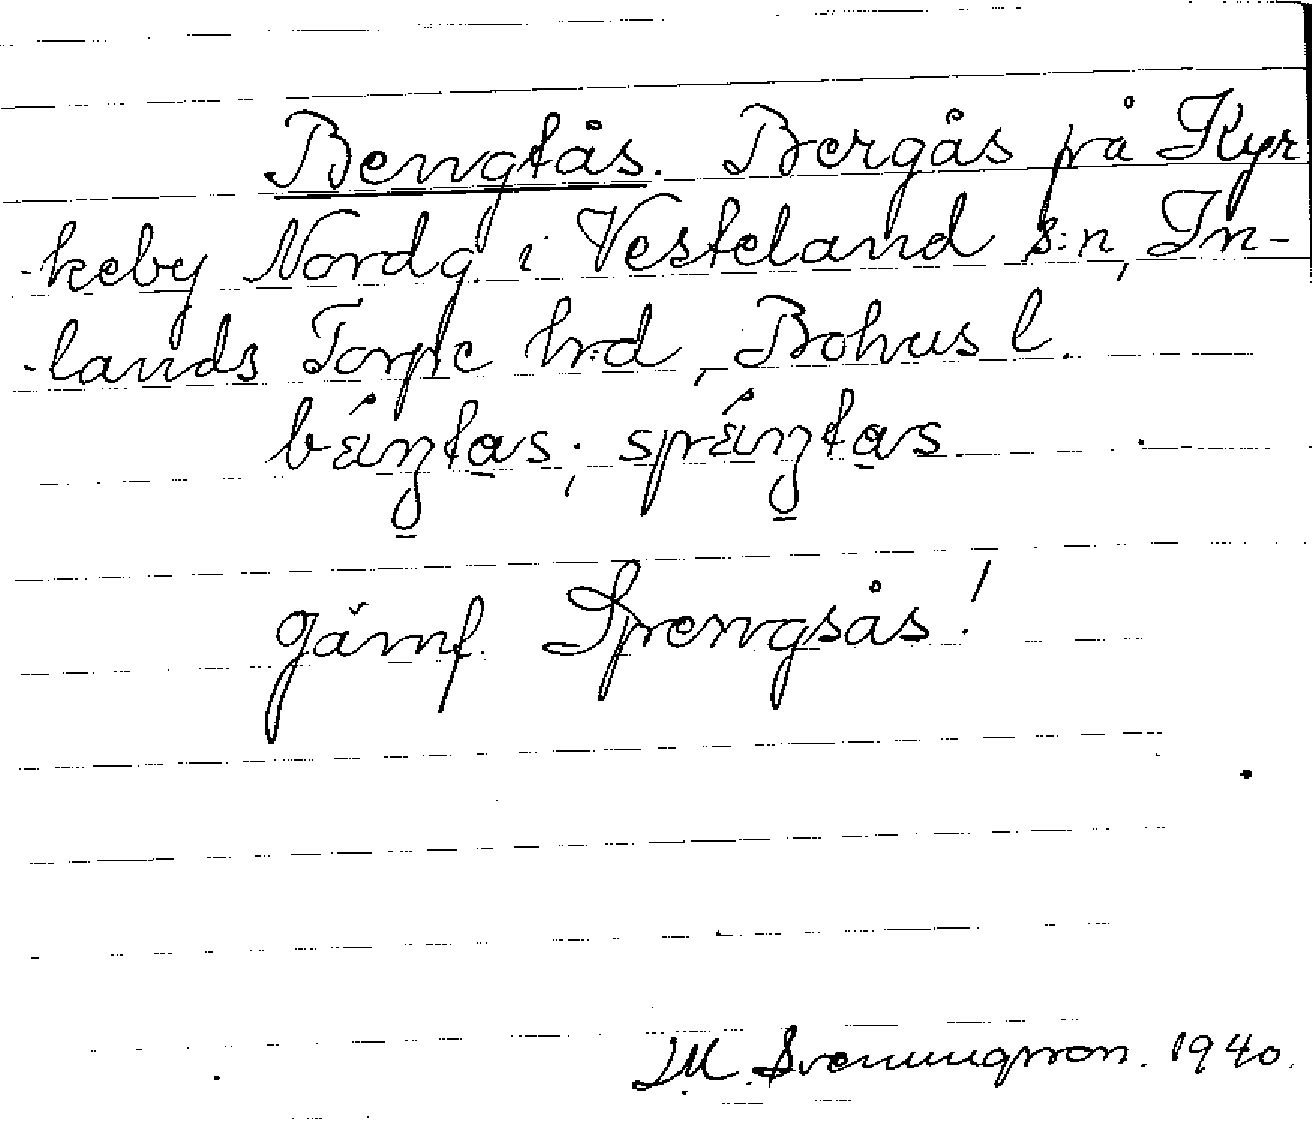 Bengtås. Bergås på Kyr
-keby Nordg. i Vesteland s:n, In-
-lands Torpe h:d, Bohus l.
jämf. Sprengsås!
M. Svenungsson. 1940.